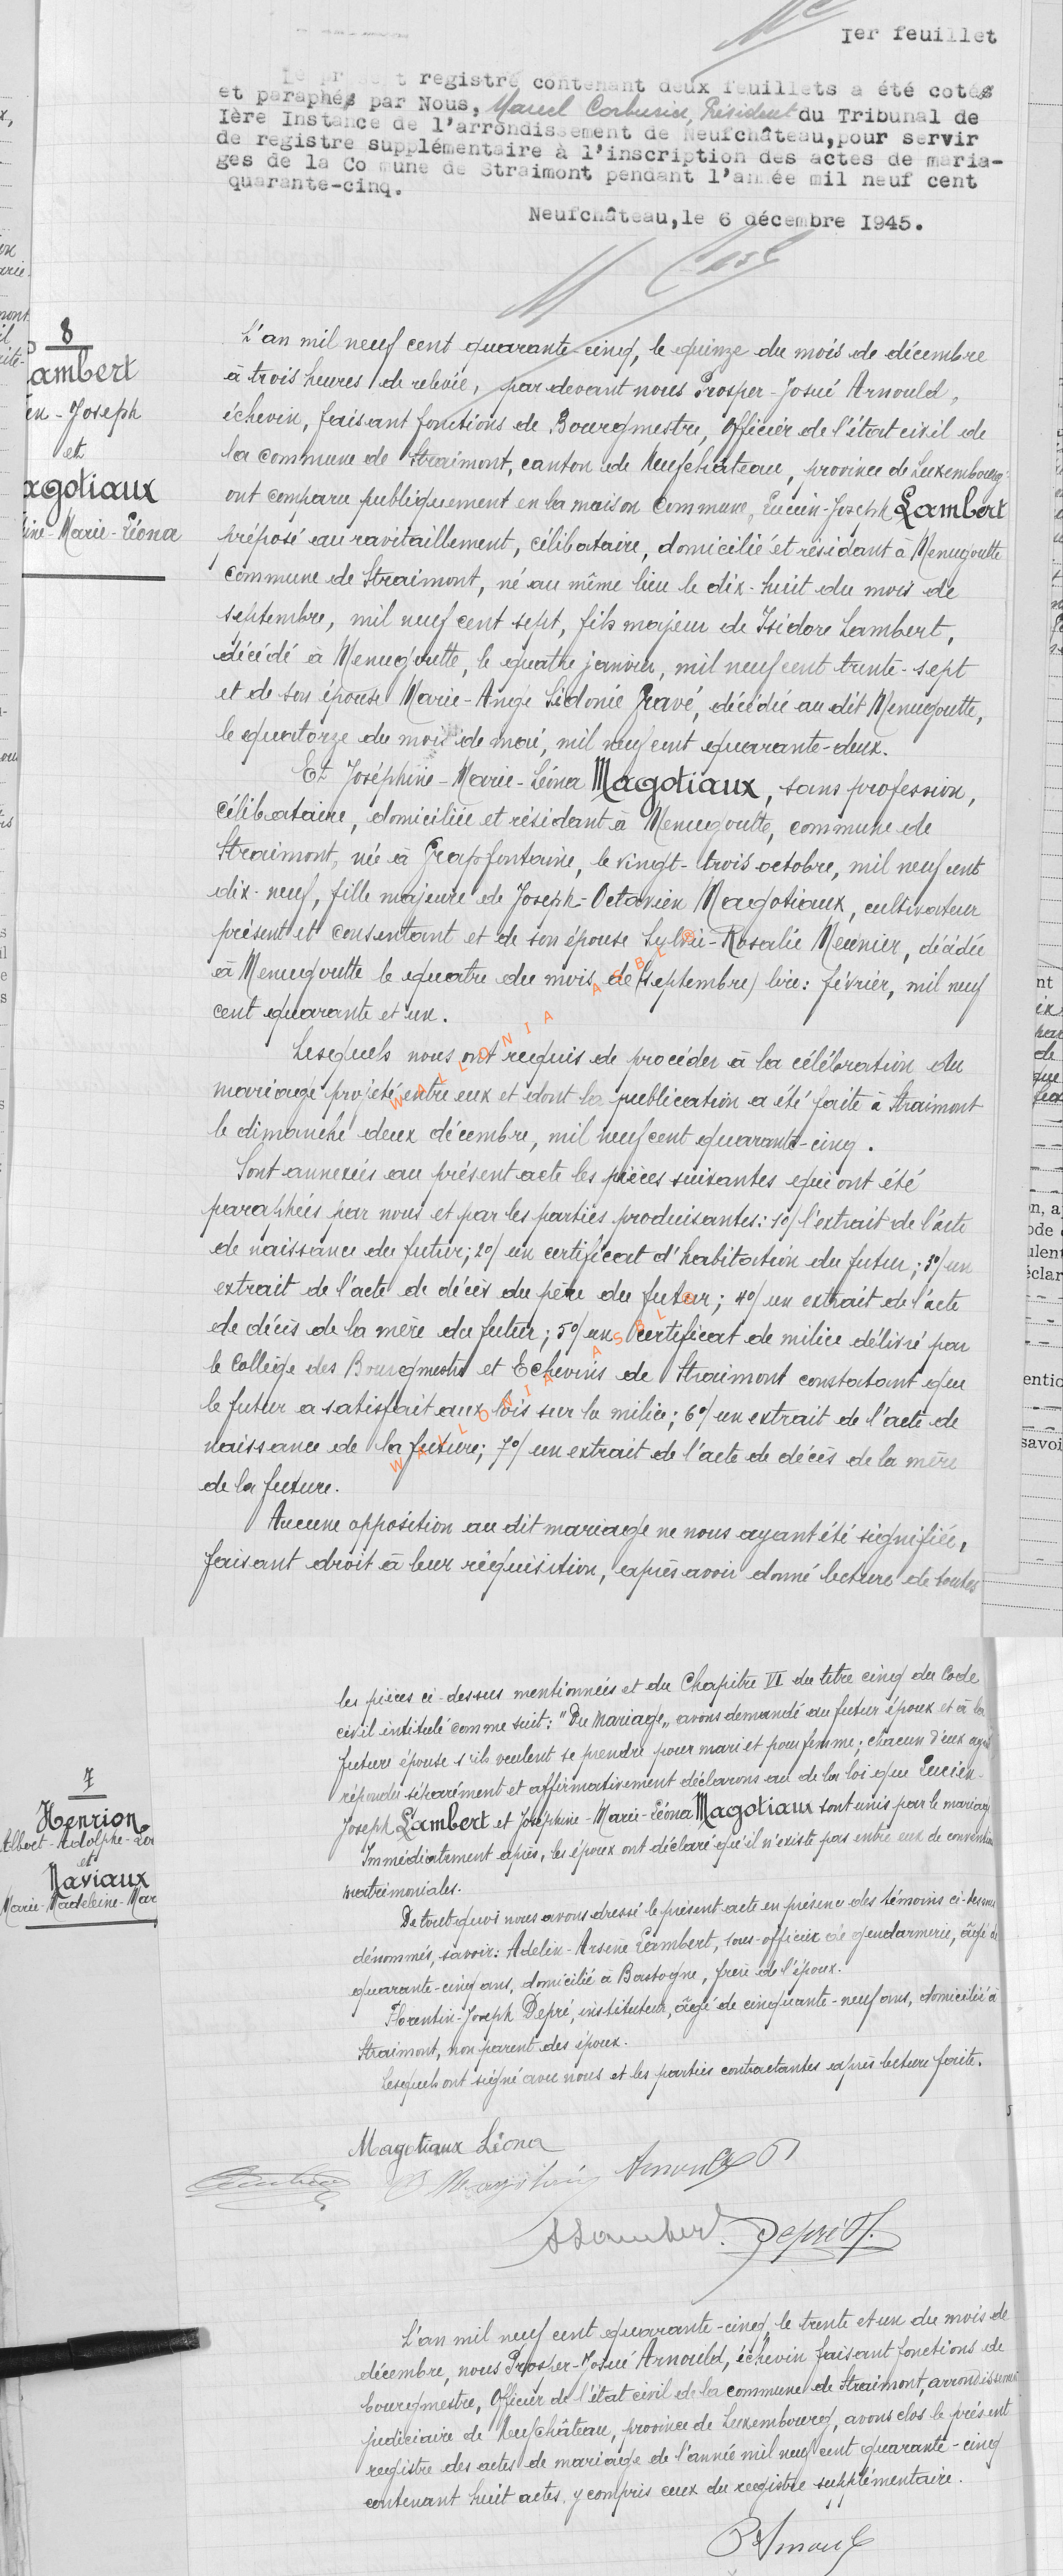 Ier feuillet
registre contenant deux feuillets a été cotés
et paraphés par Nous, Marcel Corbusier, Président du Tribunal de
Ière Instance de l'arrondissement de Neufchâteau,pour servir
de registre supplémentaire à l'inscription des actes de maria-
ges de la Co mune de Straimont pendant l'année mil neuf cent
quarante-cinq.
Neufchâteau,le 6 décembre 1945.
8
ambert
en-Joseph
et
agotiaux
ine-Marie-Léona
L'an mil neuf cent quarante-cinq, le quinze du mois de décembre
à trois heures de relevée, par devant nous Prosper-Josué Arnould,
échevin, faisant fonctions de Bourgmestre, Officier de l'état civil de
la commune de Straimont, canton de Neufchâteau, province de Luxembourg
ont comparu publiquement en la maison commune, Lucien-Joseph Lambert
préposé au ravitaillement, célibataire, domicilié et résidant à Menugoutte
commune de Straimont, né au même lieu le dix-huit du mois de
septembre, mil neuf cent sept, fils majeur de Isidore Lambert,
décédé à Menugoutte, le quatre janvier, mil neuf cent trente-sept
et de son épouse Marie-Ange Sidonie Gravé, décédée au dit Menugoutte,
le quatorze du mois de mai, mil neuf cent quarante-deux.
Et Joséphine-Marie-Léona Magotiaux, sans profession,
célibataire, domiciliée et résidant à Menugoutte, commune de
Straimont, née à Grapfontaine, le vingt-trois octobre, mil neuf cent
dix-neuf, fille majeure de Joseph-Octavien Magotiaux, cultivateur
présent et consentant et de son épouse Sylvie-Rosalie Meunier, décédée
à Menugoutte le quatre du mois de (septembre) lire: février, mil neuf
cent quarante et un.
Lesquels nous ont requis de procéder à la célébration du
mariage projeté entre eux et dont la publication a été faite à Straimont
le dimanche deux décembre, mil neuf cent quarante-cinq.
Sont annexées au présent acte les pièces suivantes qui ont été
paraphées par nous et par les parties produisantes: 1o/ l'extrait de l'acte
de naissance du futur; 2o/ un certificat d'habitation du futur; 3o/ un
extrait de l'acte de décès du père du futur; 4o/ un extrait de l'acte
de décès de la mère du futur; 5o/ un certificat de milice délivré par
le Collège des Bourgmestre et Echevins de Straimont constatant que
le futur a satisfait aux lois sur la milice; 6o/ un extrait de l'acte de
naissance de la future; 7o/ un extrait de l'acte de décès de la mère
de la future.
Aucune opposition au dit mariage ne nous ayant été signifiée,
faisant droit à leur réquisition, après avoir donné lecture de toutes
WALLONIA ASBL
WALLONIA ASBL
7
Henrion
Albert-Adolphe-Léo
et
Naviaux
Marie-Madeleine-Mar
les pièces ci-dessus mentionnées et du Chapitre VI du titre cinq du Code
civil intitulé comme suit: "Du Mariage" avons demandé au futur époux et à la
future épouse s'ils veulent se prendre pour mari et pour femme; chacun d'eux ayant
répondu séparément et affirmativement déclarons au de la loi que Lucien-
Joseph Lambert et Joséphine-Marie-Léona Magotiaux sont unis par le mariage
Immédiatement après, les époux ont déclaré qu'il n'existe pas entre eux de conventions
matrimoniales.
De tout quoi nous avons dressé le présent acte en présence des témoins ci-dessous
dénommés, savoir: Adelin-Arsène Lambert, sous-officier de gendarmerie, âgé de
quarante-cinq ans, domicilié à Bastogne, frère de l'époux.
Florentin-Joseph Depré, instituteur, âgé de cinquante-neuf ans, domicilié à
Straimont, non parent des époux.
Lesquels ont signé avec nous et les parties contractantes après lecture faite.
Magotiaux Léona
Arnould P
A Lambert. Depré F.
L'an mil neuf cent quarante-cinq, le trente et un du mois de
décembre, nous Prosper-Josué Arnould, échevin faisant fonctions de
bourgmestre, Officier de l'état civil de la commune de Straimont, arrondissement
judiciaire de Neufchâteau, province de Luxembourg, avons clos le présent
registre des actes de mariage de l'année mil neuf cent quarante-cinq
contenant huit actes, y compris ceux du registre supplémentaire.
P Arnould